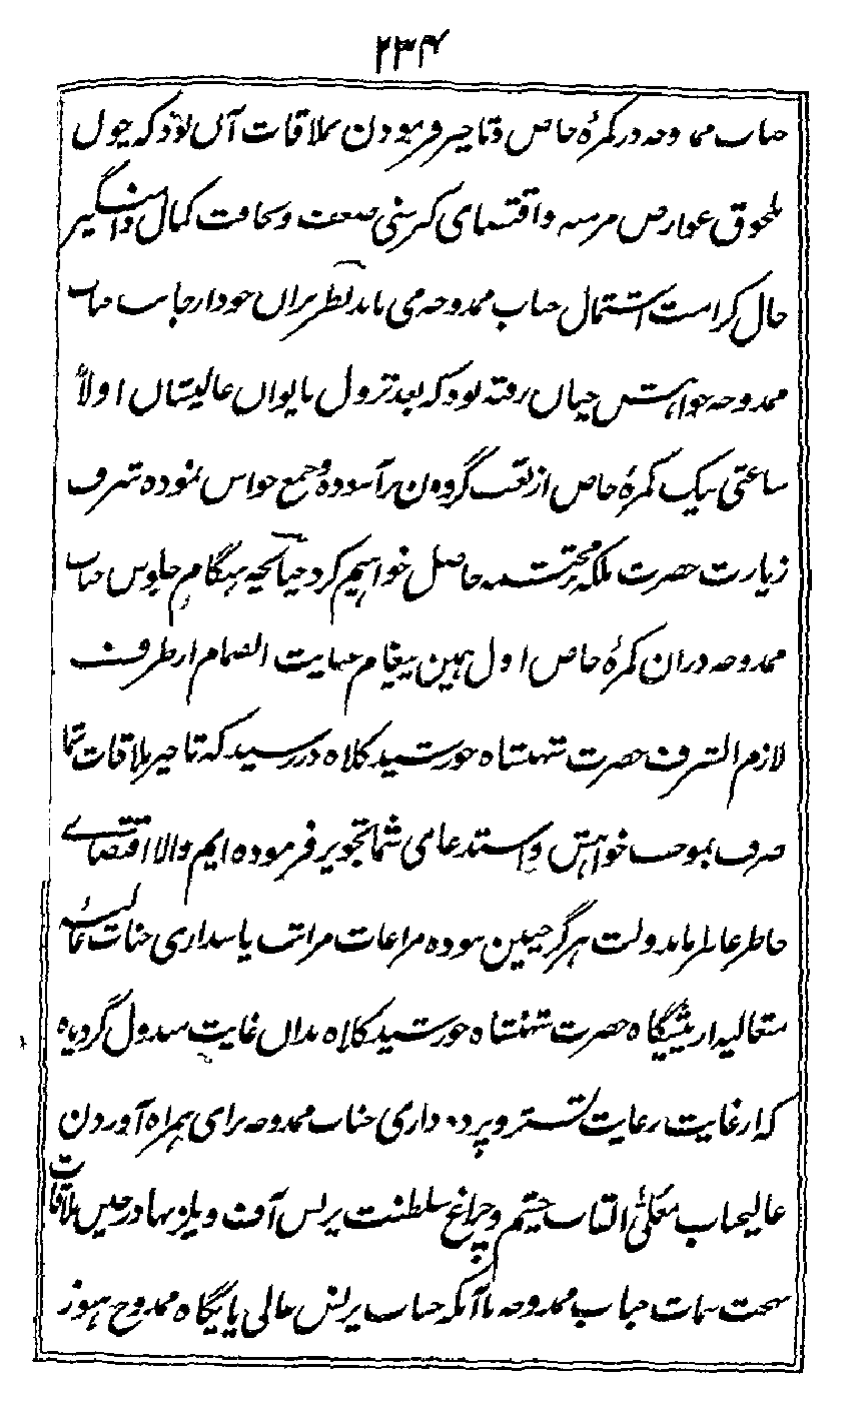 ۲۳۴
جناب ممدوحه در کمرۀ خاص و تاخیر فرمودن ملاقات آں بود که چوں
لحوق عوارض مرضیه و اقتضای کبرسنی ضعف و نحافت کمال دامنگیر
حال کرامت اشتمال جناب ممدوحه می ماند نظر براں خود از جانب جناب
ممدوحه خواهش چناں رفته بود که بعد نزول بایوان عالیشاں اولاً
ساعتی بیک کمرۀ خاص از تعب گردون برآسوده و جمع حواس نموده شرف
زیارت حضرت ملکه محتشمه حاصل خواهیم کرد چنانچه هنگام جلوس جناب
ممدوحه دران کمرۀ خاص اول همین پیغام عنایت انضمام از طرف
لازم الشرف حضرت شهنشاه خورشید کلاه در رسید که تاخیر ملاقات شما
صرف بموجب خواهش و استدعامی شما تجویز فرموده ایم والا اقتضاے
خاطر عاطر مابدولت هرگز چنین نبوده مراعات مراتب پاسداری جناب عالیه
متعالیه از پیشگاه حضرت شهنشاه خورشید کلاه بداں غایت مبذول گردیده
که از غایت رعایت تستر و پرده داری جناب ممدوحه برای همراه آوردن
عالیجناب معلیٰ القاب چشم و چراغ سلطنت پرنس آف ویلز بهادر حین ملاقات
جناب ممدوحه باآنکه جناب پرنس عالی پایگاه ممدوح هنوز